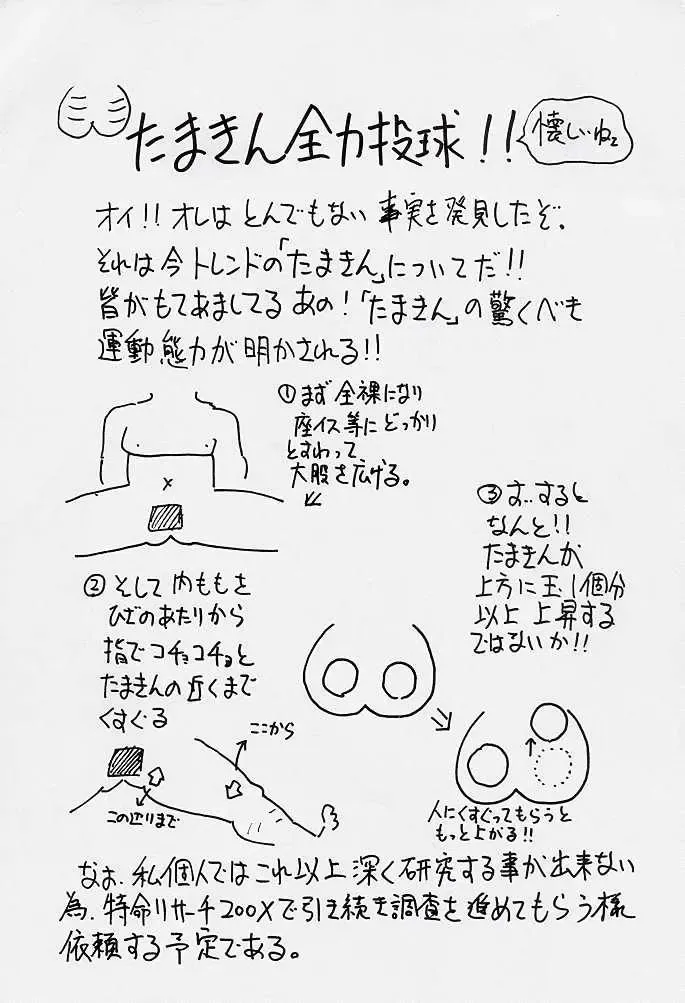 たまきん全力投球!!
懐しいねェ
オイ!! オレはとんでもない事実を発見したぞ.
それは今トレンドの「たまきん」についてだ!!
皆がもてあましてるあの!「たまきん」の驚くべき
運動態力が明かされる!!
①まず全裸になり
座イス等にどっかり
とすわって
大股を広げる。
②そして内ももを
ひざのあたりから
指でコチョコチョと
たまきんの近くまで
くすぐる
ここから
この辺りまで
③す..すると
なんと!!
たまきんが
上方に玉1個分
以上上昇する
ではないか!!
人にくすぐってもらうと
もっと上がる!!
なお、私個人ではこれ以上深く研究する事が出来ない
為、特命リサーチ200Xで引き続き調査を進めてもらう様
依頼する予定である。